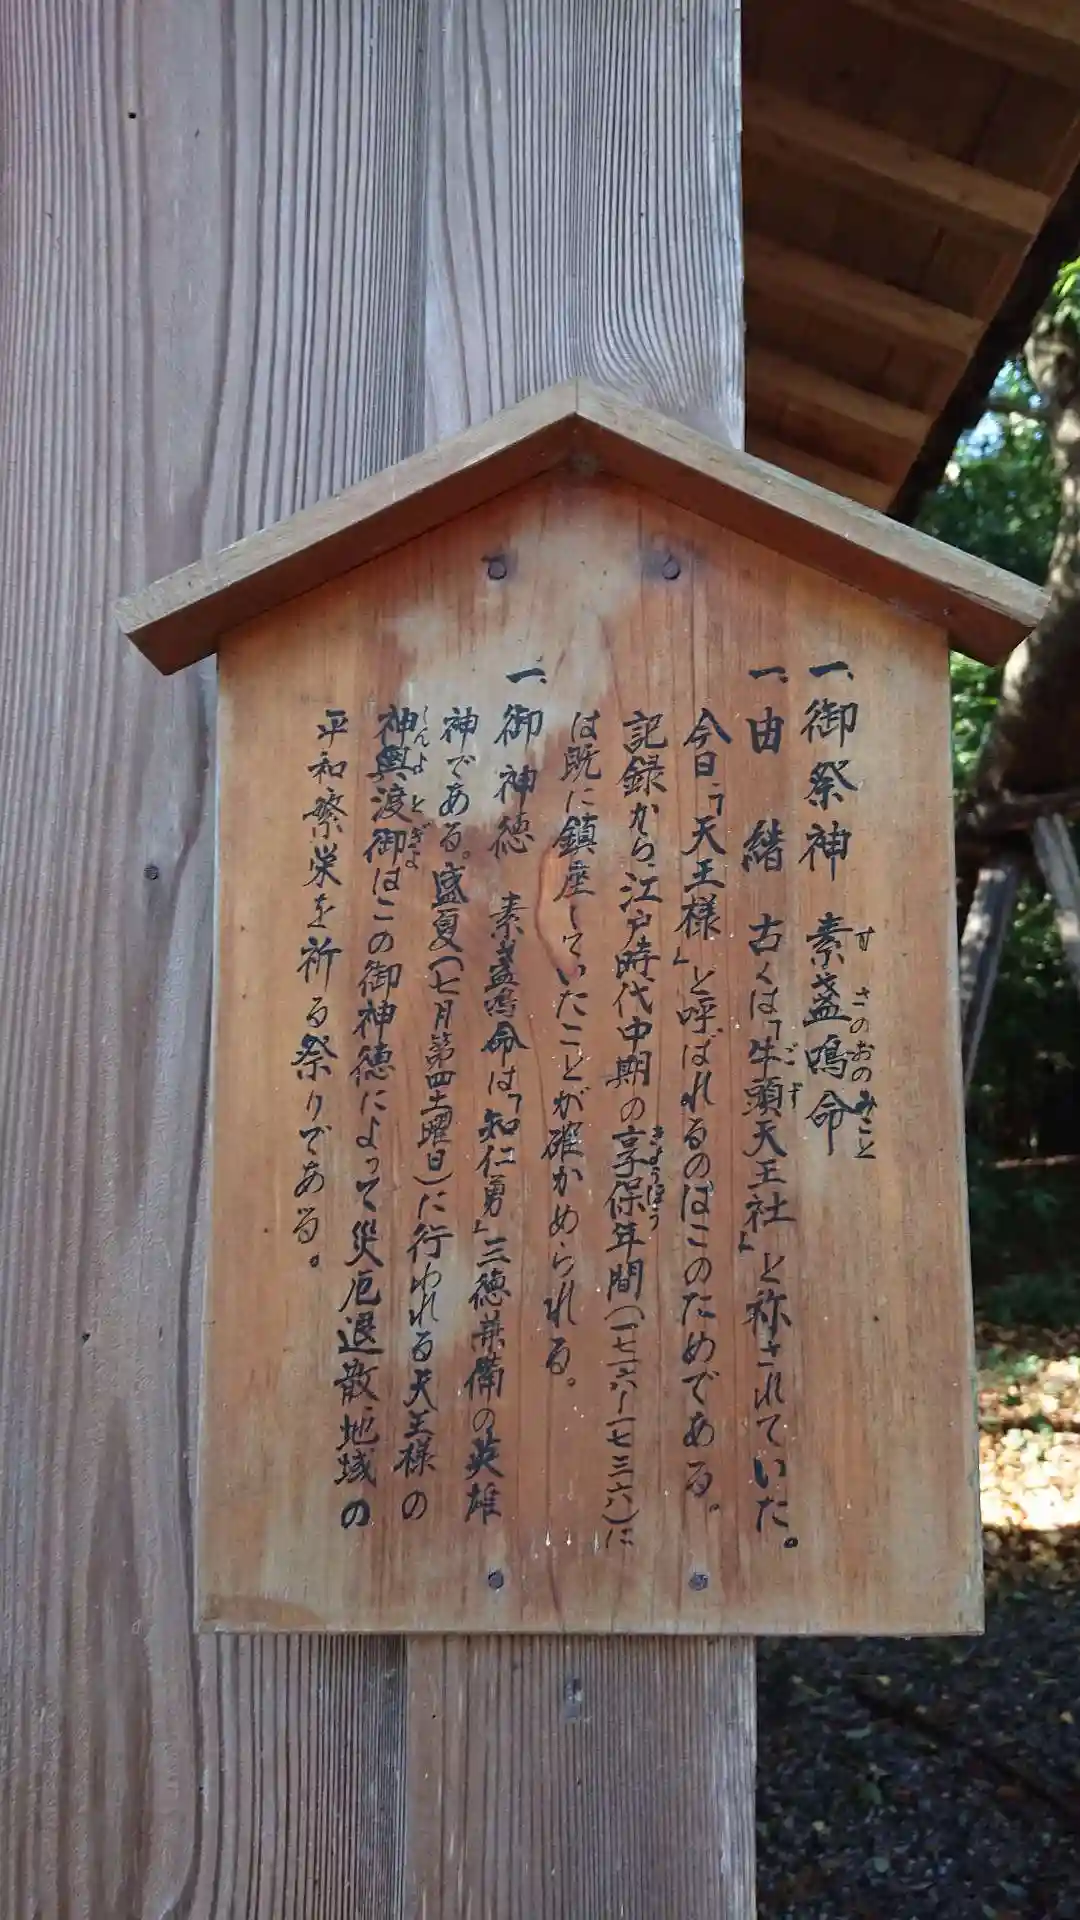 一、御祭神　素盞鳴命
すさのおのみこと
一、由緒　古くは「牛頭天王社」と称されていた。
ごず
今日「天王様」と呼ばれるのはこのためである。
記録から、江戸時代中期の享保年間(一七一六〜一七三六)に
きょうほう
は既に鎮座していたことが確かめられる。
一、御神徳　素盞鳴命は「知仁勇」三徳兼備の英雄
神である。盛夏(七月第四土曜日)に行われる天王様の
神輿渡御はこの御神徳によって災厄退散地域の
しんよとぎょ
平和繁栄を祈る祭りである。